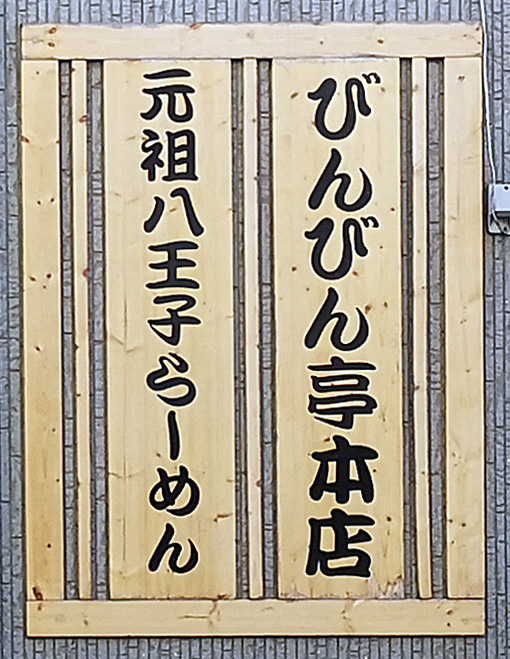 びんびん亭本店
元祖八王子らーめん